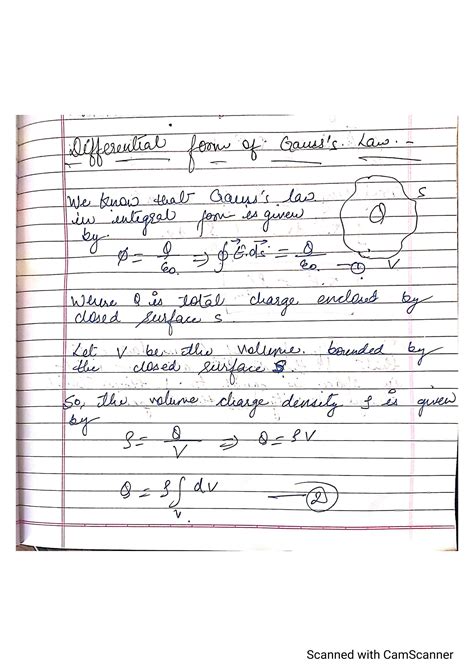 Differential form of Gauss's Law :-
We know that Gauss's law
in integral form is given
by
S
Q
V
φ = Q/ε₀ ⇒ ∮ E⃗.ds⃗ = Q/ε₀ — ①
Where Q is total charge enclosed by
closed surface S
Let V be the volume bounded by
the closed surface S
So, the volume charge density ρ is given
by
ρ = Q/V ⇒ Q = ρV
Q = ρ ∫ᵥ dV — ②
Scanned with CamScanner